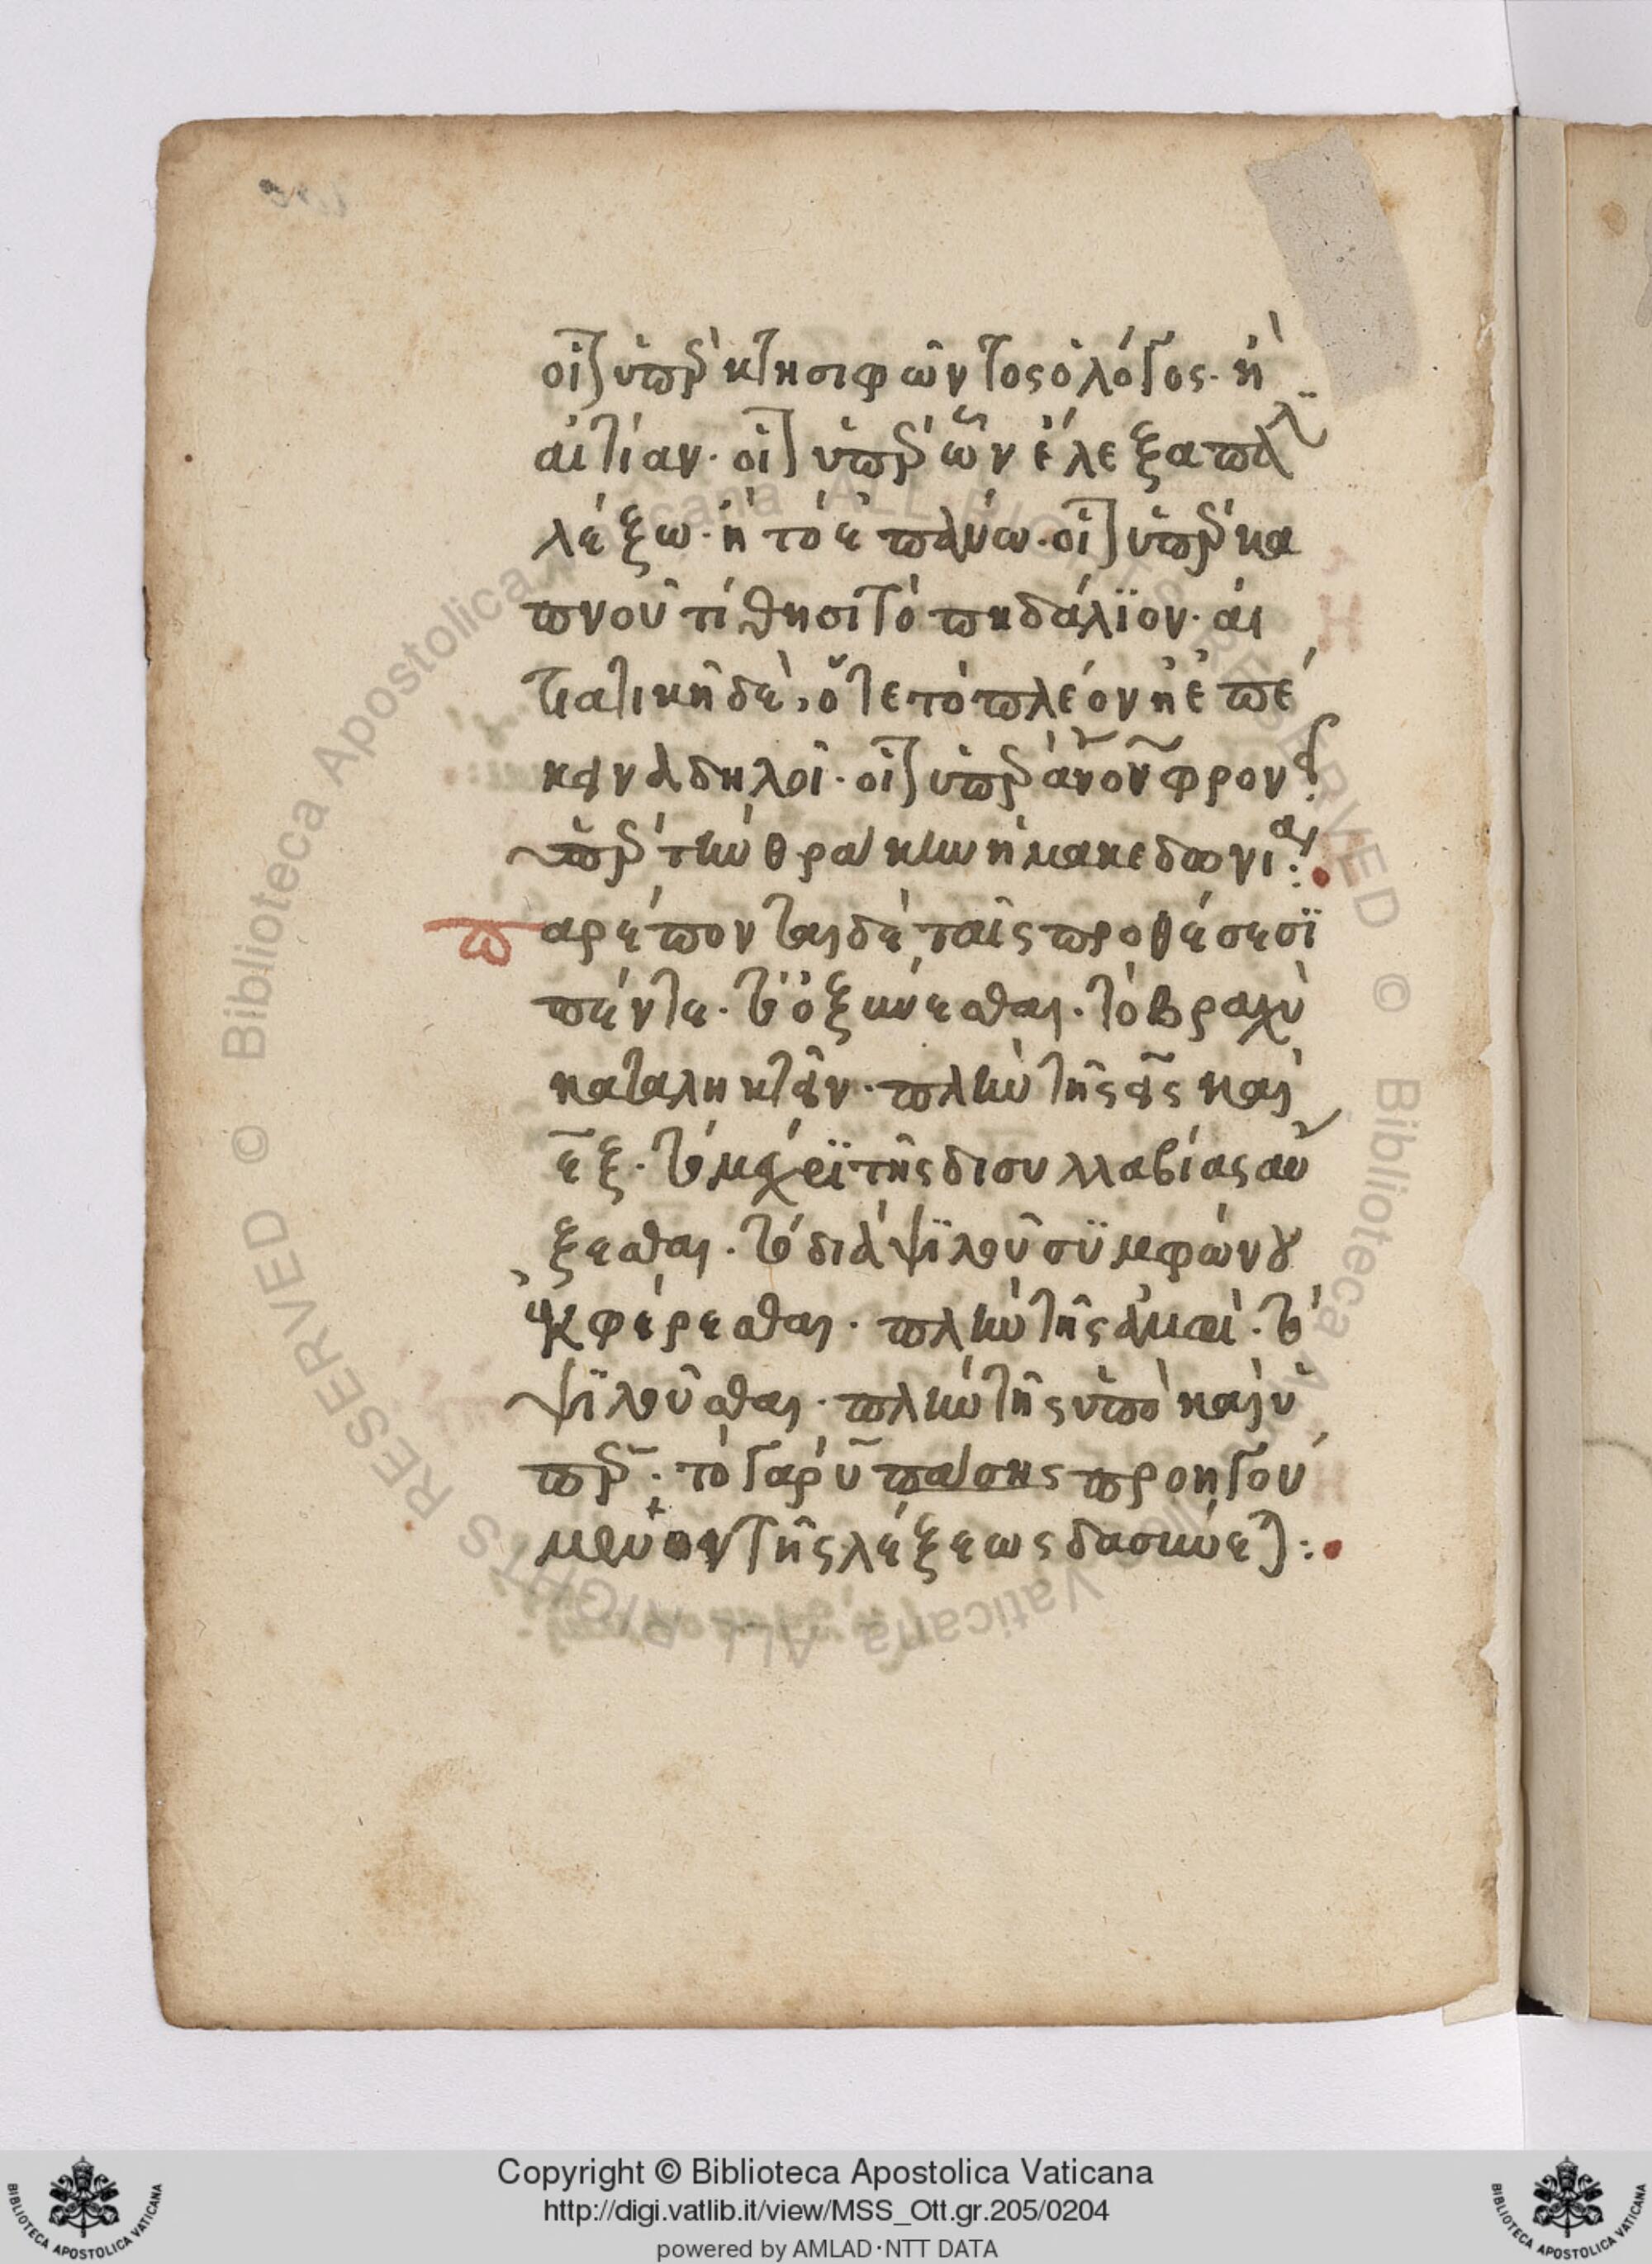 οἷον ὑπὲρ κτησιφῶντος ὁ λόγος· ἢ
αἰτίαν· οἷον ὑπὲρ ὧν ἔλεξα πάλιν
λέξω· ἢ τὸ ἐπάνω· οἷον ὑπὲρ κα
πνοῦ τίθησι τὸ πηδάλϊον· αἰ
τιατικῇ δὲ, ὅτε τὸ πλέον ἢ ἐπέ
κεινα δηλοῖ· οἷον ὑπὲρ ἄνον φρονεῖς
ὑπὲρ τὴν θράκην ἢ μακεδωνίαν:
παρέπονται δὲ ταῖς προθέσεσϊ
πέντε· τὸ ὀξύνεσθαι· τὸ βραχὺ
καταληκτεῖν· πλὴν τῆς εἰς καὶ
ἐξ· τὸ μέχρϊ τῆς δισυλλαβίας αὔ
ξεσθαι· τὸ διὰ ψϊλοῦ συμφώνου
ἐκφέρεσθαι· πλὴν τῆς ἀμφί· τὸ
ψϊλοῦσθαι· πλὴν τῆς ὑπὸ καὶ ὑ
πὲρ· τὸ γὰρ υ πάσης προηγού
μενον τῆς λέξεως δασύνεται:
Copyright © Biblioteca Apostolica Vaticana
http://digi.vatlib.it/view/MSS_Ott.gr.205/0204
powered by AMLAD·NTT DATA